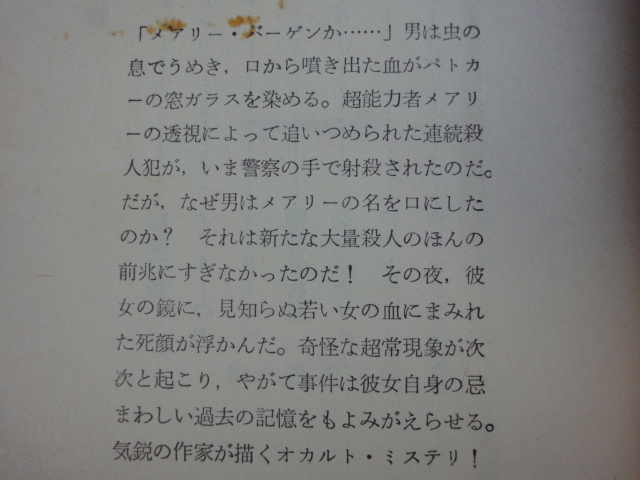 「メアリー・バーゲンか……」男は虫の
息でうめき，口から噴き出た血がパトカ
ーの窓ガラスを染める。超能力者メアリ
ーの透視によって追いつめられた連続殺
人犯が，いま警察の手で射殺されたのだ。
だが，なぜ男はメアリーの名を口にした
のか？　それは新たな大量殺人のほんの
前兆にすぎなかったのだ！　その夜，彼
女の鏡に，見知らぬ若い女の血にまみれ
た死顔が浮かんだ。奇怪な超常現象が次
次と起こり，やがて事件は彼女自身の忌
まわしい過去の記憶をもよみがえらせる。
気鋭の作家が描くオカルト・ミステリ！